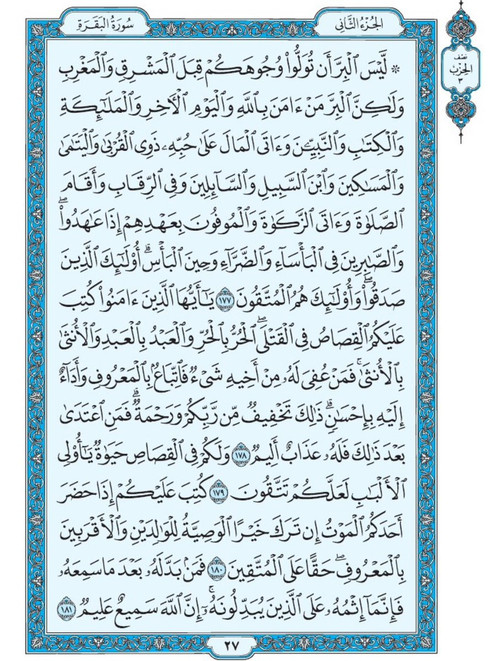 الجزء الثاني
سورة البقرة
نصف
الحزب
٣
۞ لَّيْسَ ٱلْبِرَّ أَن تُوَلُّوا۟ وُجُوهَكُمْ قِبَلَ ٱلْمَشْرِقِ وَٱلْمَغْرِبِ
وَلَـٰكِنَّ ٱلْبِرَّ مَنْ ءَامَنَ بِٱللَّهِ وَٱلْيَوْمِ ٱلْـَٔاخِرِ وَٱلْمَلَـٰٓئِكَةِ
وَٱلْكِتَـٰبِ وَٱلنَّبِيِّـۧنَ وَءَاتَى ٱلْمَالَ عَلَىٰ حُبِّهِۦ ذَوِى ٱلْقُرْبَىٰ وَٱلْيَتَـٰمَىٰ
وَٱلْمَسَـٰكِينَ وَٱبْنَ ٱلسَّبِيلِ وَٱلسَّآئِلِينَ وَفِى ٱلرِّقَابِ وَأَقَامَ
ٱلصَّلَوٰةَ وَءَاتَى ٱلزَّكَوٰةَ وَٱلْمُوفُونَ بِعَهْدِهِمْ إِذَا عَـٰهَدُوا۟ ۖ
وَٱلصَّـٰبِرِينَ فِى ٱلْبَأْسَآءِ وَٱلضَّرَّآءِ وَحِينَ ٱلْبَأْسِ ۗ أُو۟لَـٰٓئِكَ ٱلَّذِينَ
صَدَقُوا۟ ۖ وَأُو۟لَـٰٓئِكَ هُمُ ٱلْمُتَّقُونَ ١٧٧ يَـٰٓأَيُّهَا ٱلَّذِينَ ءَامَنُوا۟ كُتِبَ
عَلَيْكُمُ ٱلْقِصَاصُ فِى ٱلْقَتْلَى ۖ ٱلْحُرُّ بِٱلْحُرِّ وَٱلْعَبْدُ بِٱلْعَبْدِ وَٱلْأُنثَىٰ
بِٱلْأُنثَىٰ ۚ فَمَنْ عُفِىَ لَهُۥ مِنْ أَخِيهِ شَىْءٌ فَٱتِّبَاعٌۢ بِٱلْمَعْرُوفِ وَأَدَآءٌ
إِلَيْهِ بِإِحْسَـٰنٍ ۗ ذَٰلِكَ تَخْفِيفٌ مِّن رَّبِّكُمْ وَرَحْمَةٌ ۗ فَمَنِ ٱعْتَدَىٰ
بَعْدَ ذَٰلِكَ فَلَهُۥ عَذَابٌ أَلِيمٌ ١٧٨ وَلَكُمْ فِى ٱلْقِصَاصِ حَيَوٰةٌ يَـٰٓأُو۟لِى
ٱلْأَلْبَـٰبِ لَعَلَّكُمْ تَتَّقُونَ ١٧٩ كُتِبَ عَلَيْكُمْ إِذَا حَضَرَ
أَحَدَكُمُ ٱلْمَوْتُ إِن تَرَكَ خَيْرًا ٱلْوَصِيَّةُ لِلْوَٰلِدَيْنِ وَٱلْأَقْرَبِينَ
بِٱلْمَعْرُوفِ ۖ حَقًّا عَلَى ٱلْمُتَّقِينَ ١٨٠ فَمَنۢ بَدَّلَهُۥ بَعْدَ مَا سَمِعَهُۥ
فَإِنَّمَآ إِثْمُهُۥ عَلَى ٱلَّذِينَ يُبَدِّلُونَهُۥٓ ۚ إِنَّ ٱللَّهَ سَمِيعٌ عَلِيمٌ ١٨١
٢٧